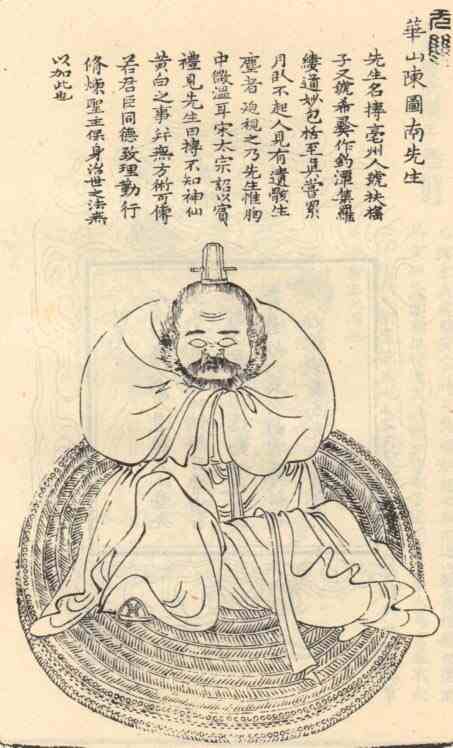 華山陳圖南先生
先生名摶亳州人號扶搖
子又號希彛作釣潭集羅
縷道妙包括至真嘗累
月臥不起人見有遺骸生
塵者廹視之乃先生惟胸
中微溫耳宋太宗詔以賓
禮見先生曰摶不知神仙
黃白之事并無方術可傳
若君臣同德致理勤行
脩煉聖主保身治世之法無
以加此也